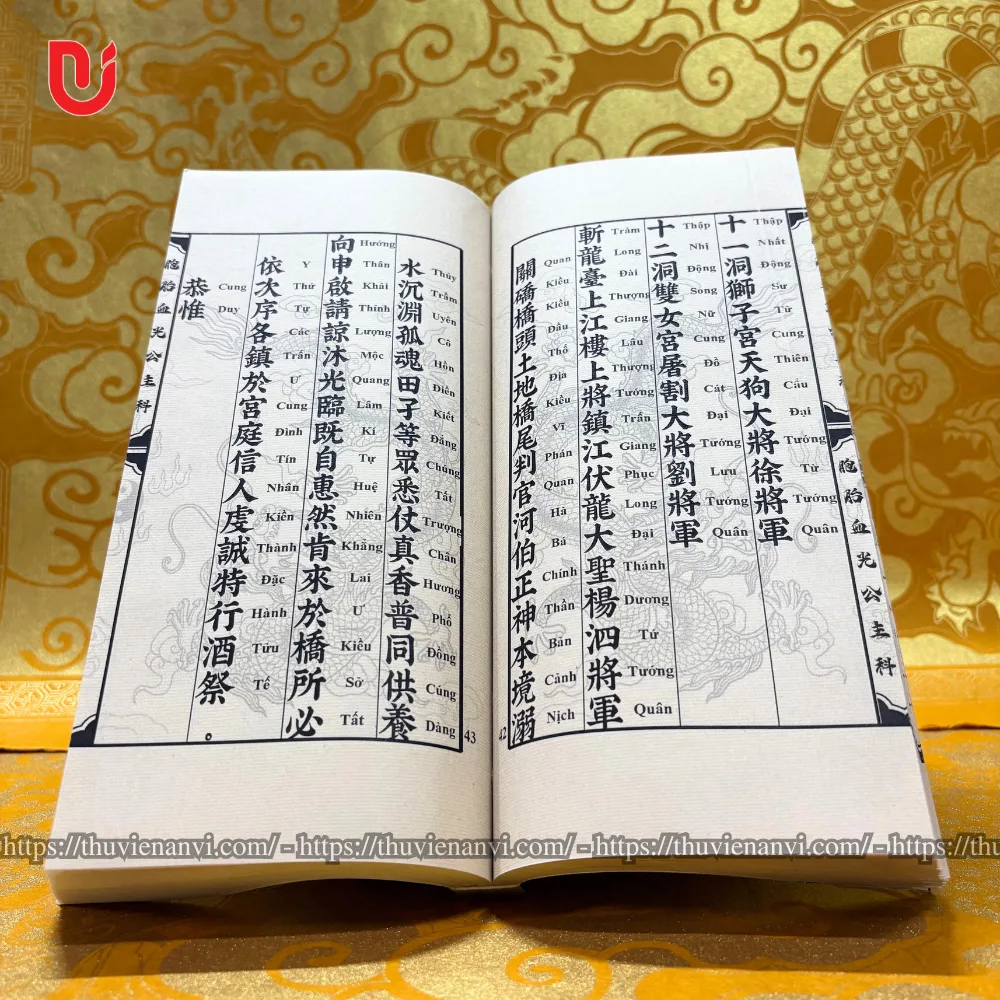 十一洞獅子宮天狗大將徐將軍
Thập Nhất Động Sư Tử Cung Thiên Cẩu Đại Tướng Từ Tướng Quân
十二洞雙女宮屠割大將劉將軍
Thập Nhị Động Song Nữ Cung Đồ Cát Đại Tướng Lưu Tướng Quân
斬龍臺上江樓上將鎮江伏龍大聖楊泗將軍
Trảm Long Đài Thượng Giang Lâu Thượng Tướng Trấn Giang Phục Long Đại Thánh Dương Tứ Tướng Quân
關礄橋頭土地橋尾判官河伯正神本境溺
Quan Kiều Kiều Đầu Thổ Địa Kiều Vĩ Phán Quan Hà Bá Chính Thần Bản Cảnh Nịch
42
胞胎血光公主科
水沉淵孤魂田子等眾悉仗真香普同供養
Thủy Trầm Uyên Cô Hồn Điền Kiết Đẳng Chúng Tất Trượng Chân Hương Phổ Đồng Cúng Dàng
向申啟請諒沐光臨既自惠然肯來於橋所必
Hướng Thân Khải Thỉnh Lượng Mộc Quang Lâm Kí Tự Huệ Nhiên Khẳng Lai Ư Kiều Sở Tất
依次序各鎮於宮庭信人虔誠特行酒祭。
Y Thứ Tự Các Trấn Ư Cung Đình Tín Nhân Kiền Thành Đặc Hành Tửu Tế
恭惟
Cung Duy
43
胞胎血光公主科
https://thuvienanvi.com/ - https://thuvienanvi.com/ - https://thuvienanvi.com/